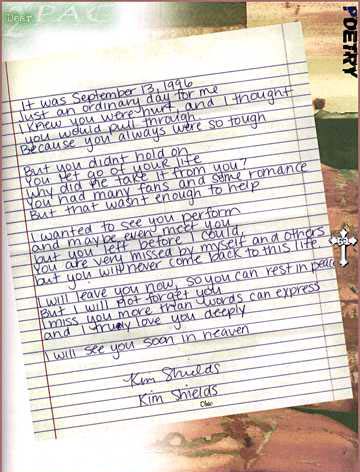 Dear 2PAC
POETRY
It was September 13, 1996
Just an ordinary day for me
I knew you were hurt, and I thought
you would pull through
Because you always were so tough
But you didnt hold on
You let go of your life
Why did he take it from you?
You had many fans and some romance
But that wasnt enough to help
I wanted to see you perform
and maybe even meet you
but you left before I could,
You are very missed by myself and others
but you will never come back to this life
I will leave you now, so you can rest in peace
But I will not forget you
I miss you more than words can express
and I truly love you deeply
I will see you soon in heaven
Kim Shields
Kim Shields
Ohio